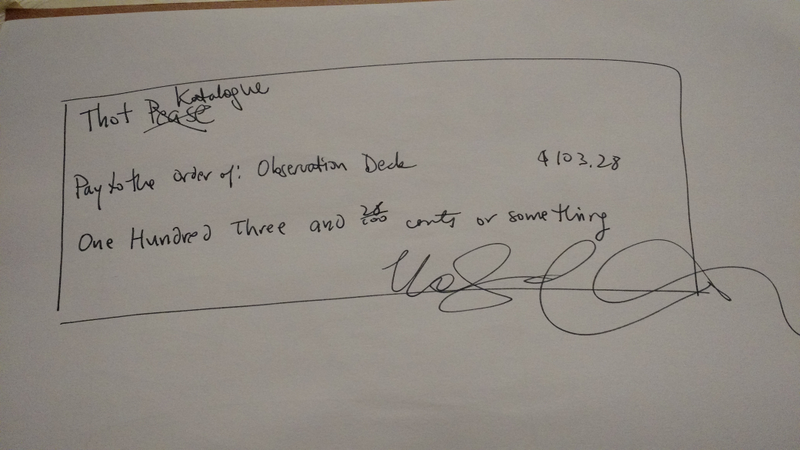 Thot Katalogue
Pay to the order of: Observation Deck $103.28
One Hundred Three and 28/100 cents or something